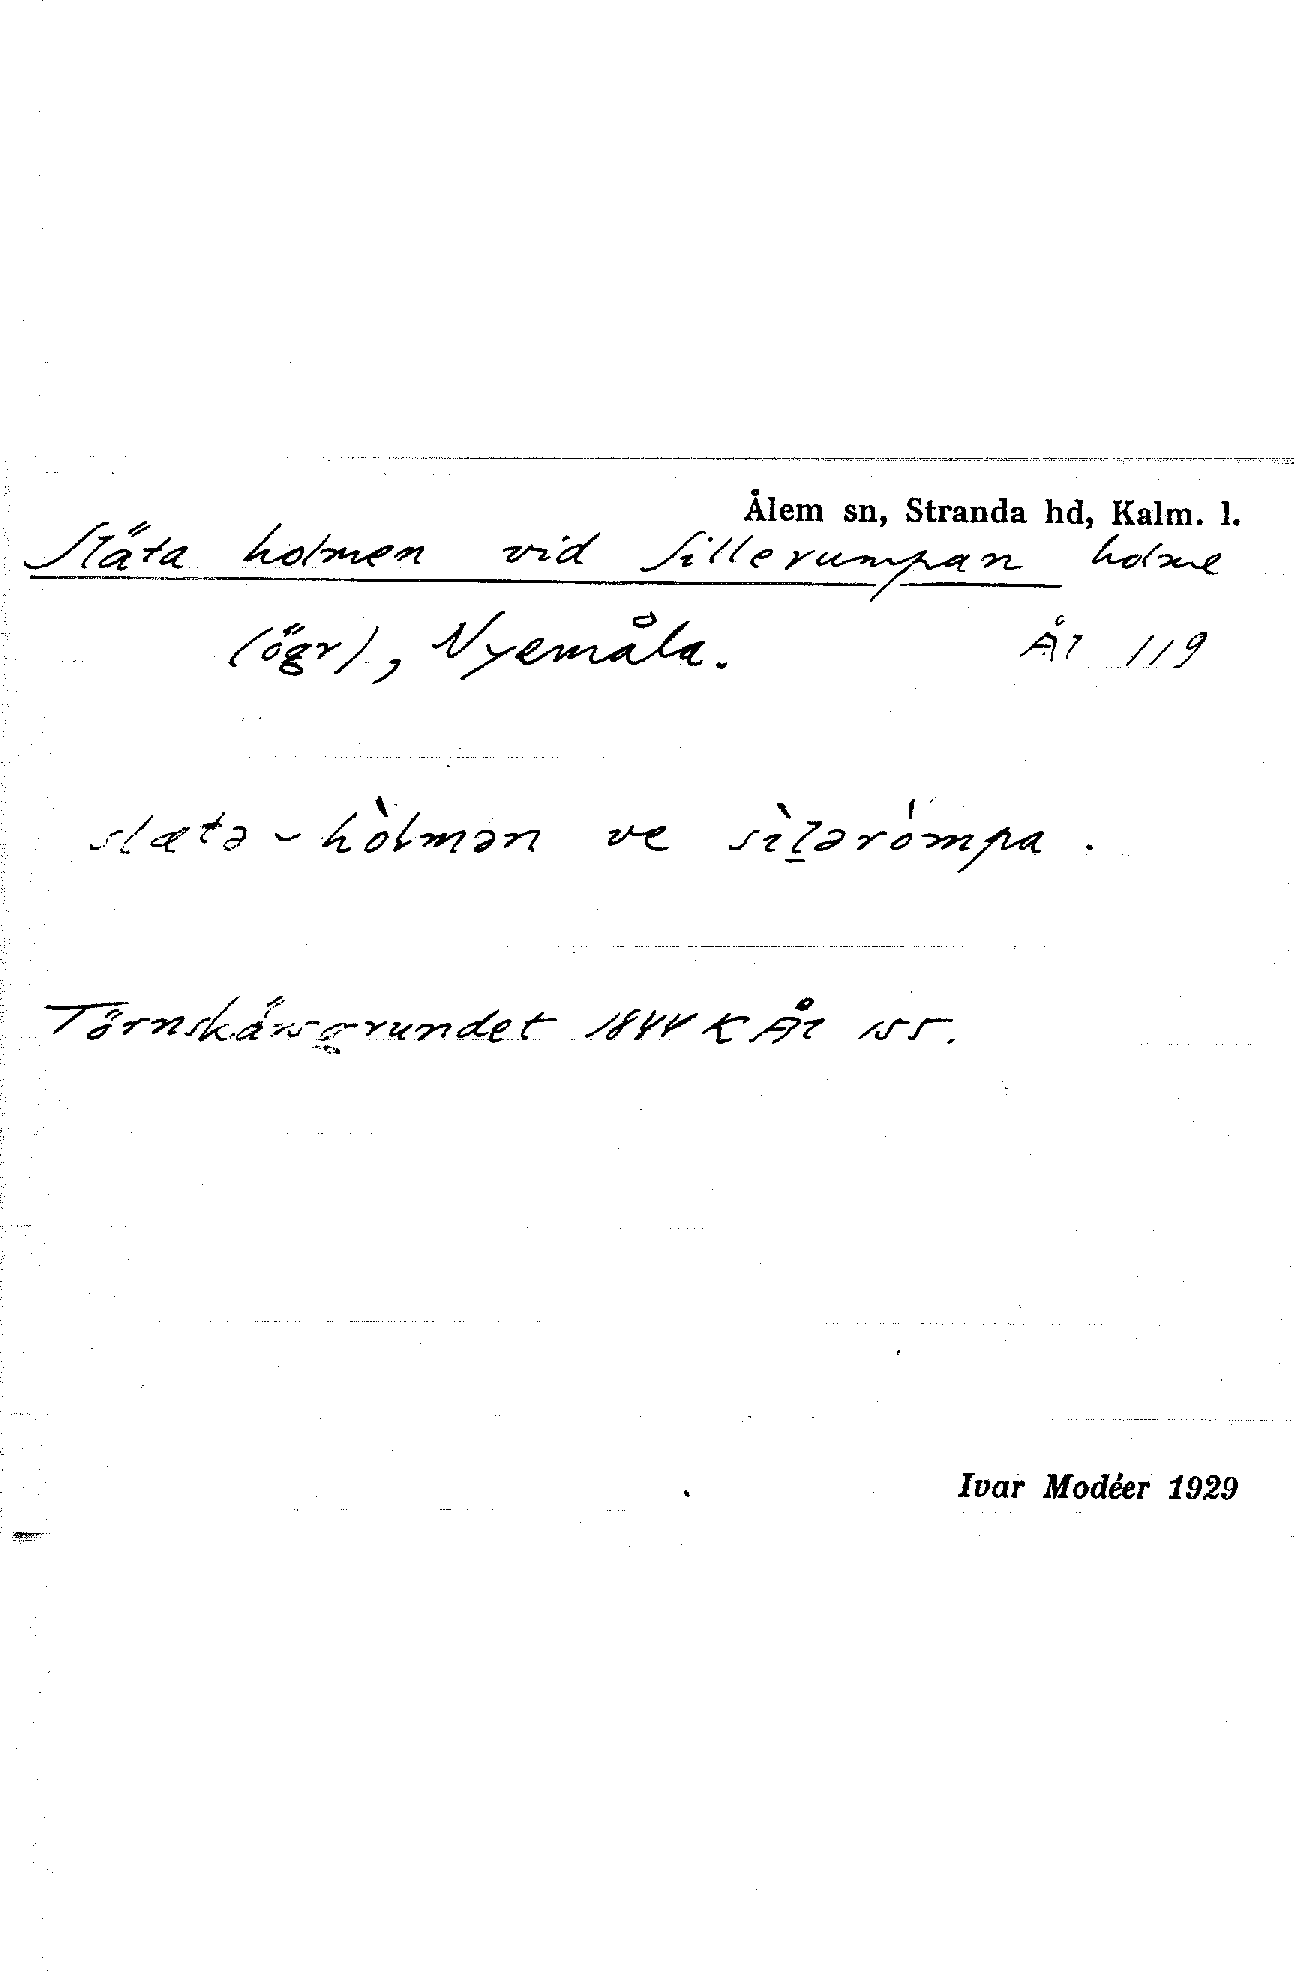 Ålem sn, Stranda hd, Kalm. l.
Släta holmen vid Sillerumpan holme
(ögr), Nyemåla. Ål 119
slætə - hòlmən ve sìlərómpa .
Törnskärsgrundet 1844 K Ål 155.
Ivar Modéer 1929